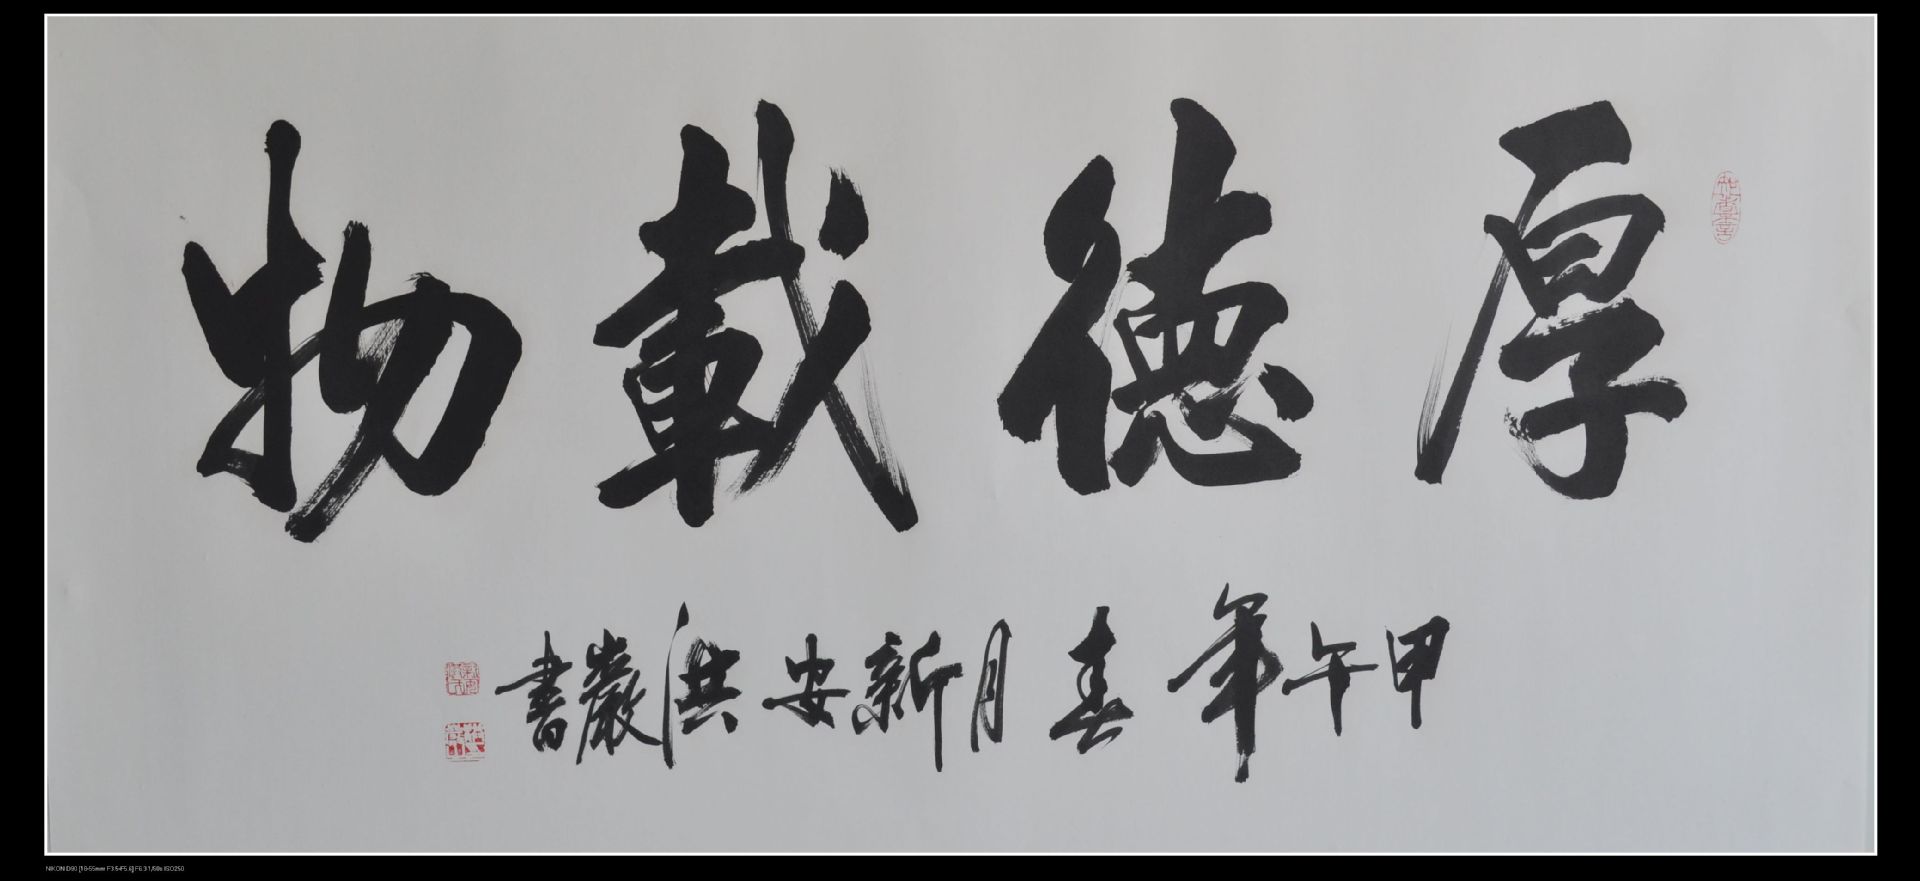 厚德載物
甲午年春月新安洪嚴書
NIKON D90 [18-55mm F3.5-F5.6] F6.3 1/60s ISO250